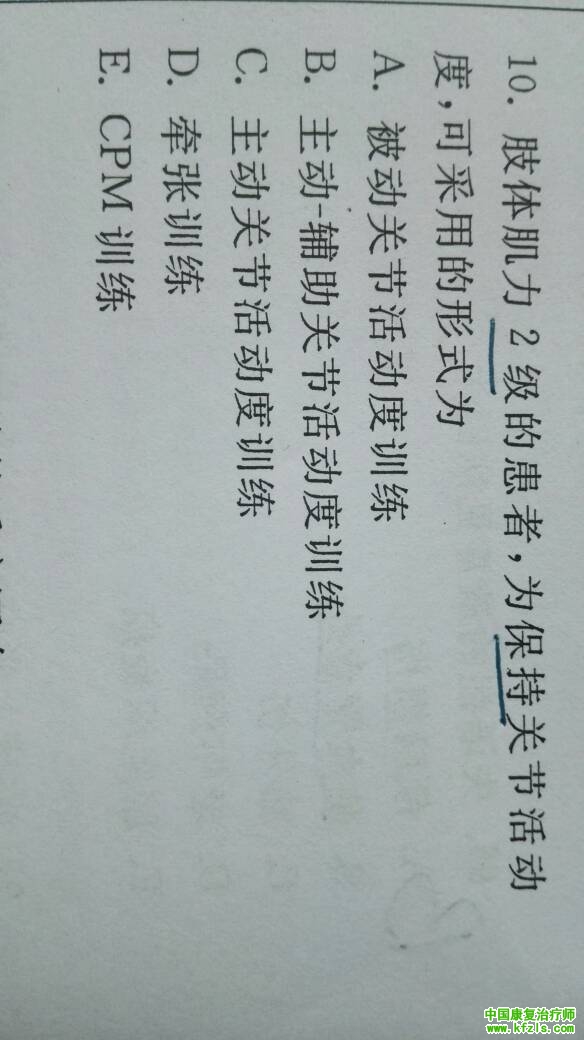 10. 肢体肌力 2 级的患者,为保持关节活动
度,可采用的形式为
A. 被动关节活动度训练
B. 主动-辅助关节活动度训练
C. 主动关节活动度训练
D. 牵张训练
E. CPM 训练
中国康复治疗师
www.kfzls.com